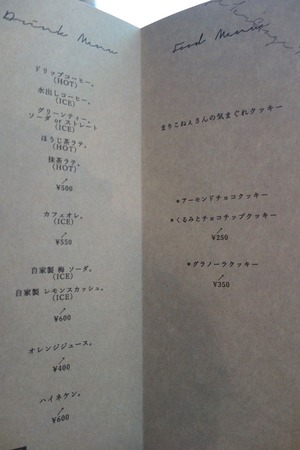 Drink Menu
ドリップコーヒー。
(HOT)
水出しコーヒー。
(ICE)
グリーンティー。
ソーダ or ストレート
(ICE)
ほうじ茶ラテ。
(HOT)
抹茶ラテ。
(HOT)
¥500
カフェオレ。
(ICE)
¥550
自家製 梅 ソーダ。
(ICE)
自家製 レモンスカッシュ。
(ICE)
¥600
オレンジジュース。
¥400
ハイネケン。
¥600
Food Menu
まりこねぇさんの気まぐれクッキー
*アーモンドチョコクッキー
*くるみとチョコチップクッキー
¥250
*グラノーラクッキー
¥350